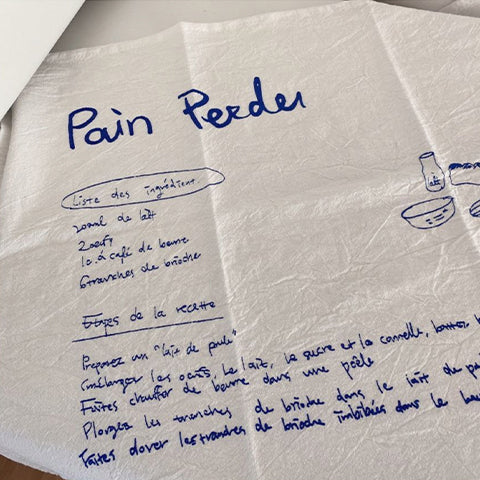 Pain Perdu
Liste des ingrédients
200ml de lait
2 oeufs
1c.à café de beurre
6 tranches de brioche
Etapes de la recette
Preparez un "lait de poule"
(mélangez les oeufs, le lait, le sucre et la cannelle, battez
Faites chauffer de beurre dans une poêle
Plongez les tranches de brioche dans le lait de
Faites dorer les tranches de brioche imbibées dans le
lait